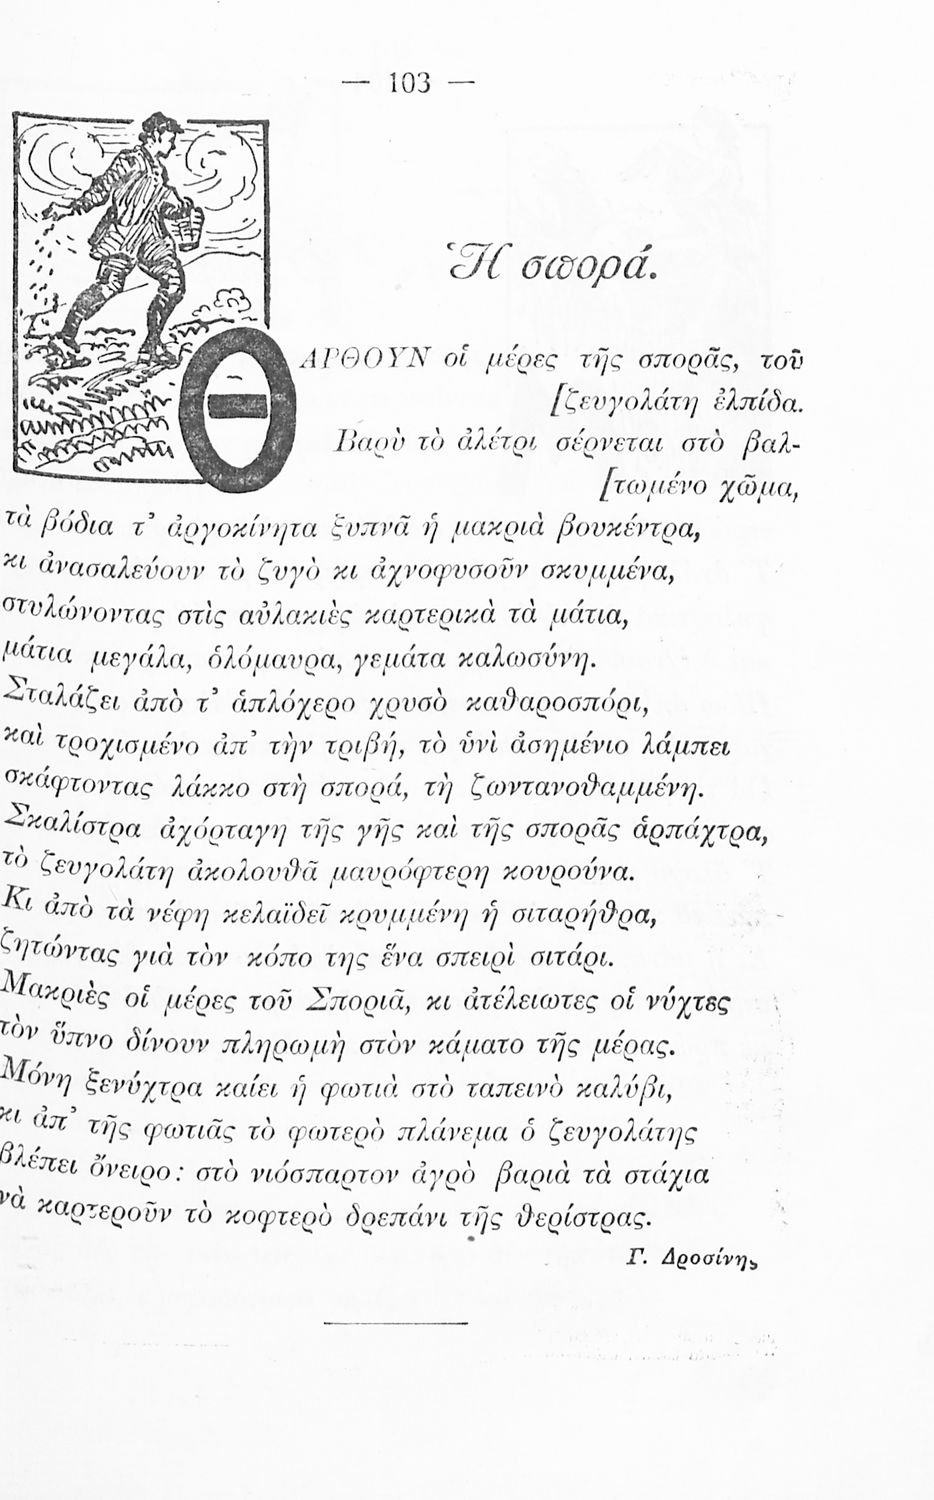 — 103 —
Ἡ σπορά.
ΘΑΡΘΟΥΝ οἱ μέρες τῆς σπορᾶς, τοῦ
[ζευγολάτη ἐλπίδα.
Βαρὺ τὸ ἀλέτρι σέρνεται στὸ βαλ-
[τωμένο χῶμα,
τὰ βόδια τ’ ἀργοκίνητα ξυπνᾶ ἡ μακριὰ βουκέντρα,
κι ἀνασαλεύουν τὸ ζυγὸ κι ἀχνοφυσοῦν σκυμμένα,
στυλώνοντας στὶς αὐλακιὲς καρτερικὰ τὰ μάτια,
μάτια μεγάλα, ὁλόμαυρα, γεμάτα καλωσύνη.
Σταλάζει ἀπὸ τ’ ἁπλόχερο χρυσὸ καθαροσπόρι,
καὶ τροχισμένο ἀπ’ τὴν τριβή, τὸ ὑνὶ ἀσημένιο λάμπει
σκάφτοντας λάκκο στὴ σπορά, τὴ ζωντανοθαμμένη.
Σκαλίστρα ἀχόρταγη τῆς γῆς καὶ τῆς σπορᾶς ἁρπάχτρα,
τὸ ζευγολάτη ἀκολουθᾶ μαυρόφτερη κουρούνα.
Κι ἀπὸ τὰ νέφη κελαϊδεῖ κρυμμένη ἡ σιταρήθρα,
ζητώντας γιὰ τὸν κόπο της ἕνα σπειρὶ σιτάρι.
Μακριὲς οἱ μέρες τοῦ Σποριᾶ, κι ἀτέλειωτες οἱ νύχτες
τὸν ὕπνο δίνουν πληρωμὴ στὸν κάματο τῆς μέρας.
Μόνη ξενύχτρα καίει ἡ φωτιὰ στὸ ταπεινὸ καλύβι,
κι ἀπ’ τῆς φωτιᾶς τὸ φωτερὸ πλάνεμα ὁ ζευγολάτης
βλέπει ὄνειρο: στὸ νιόσπαρτον ἀγρὸ βαριὰ τὰ στάχια
νὰ καρτεροῦν τὸ κοφτερὸ δρεπάνι τῆς θερίστρας.
Γ. Δροσίνης